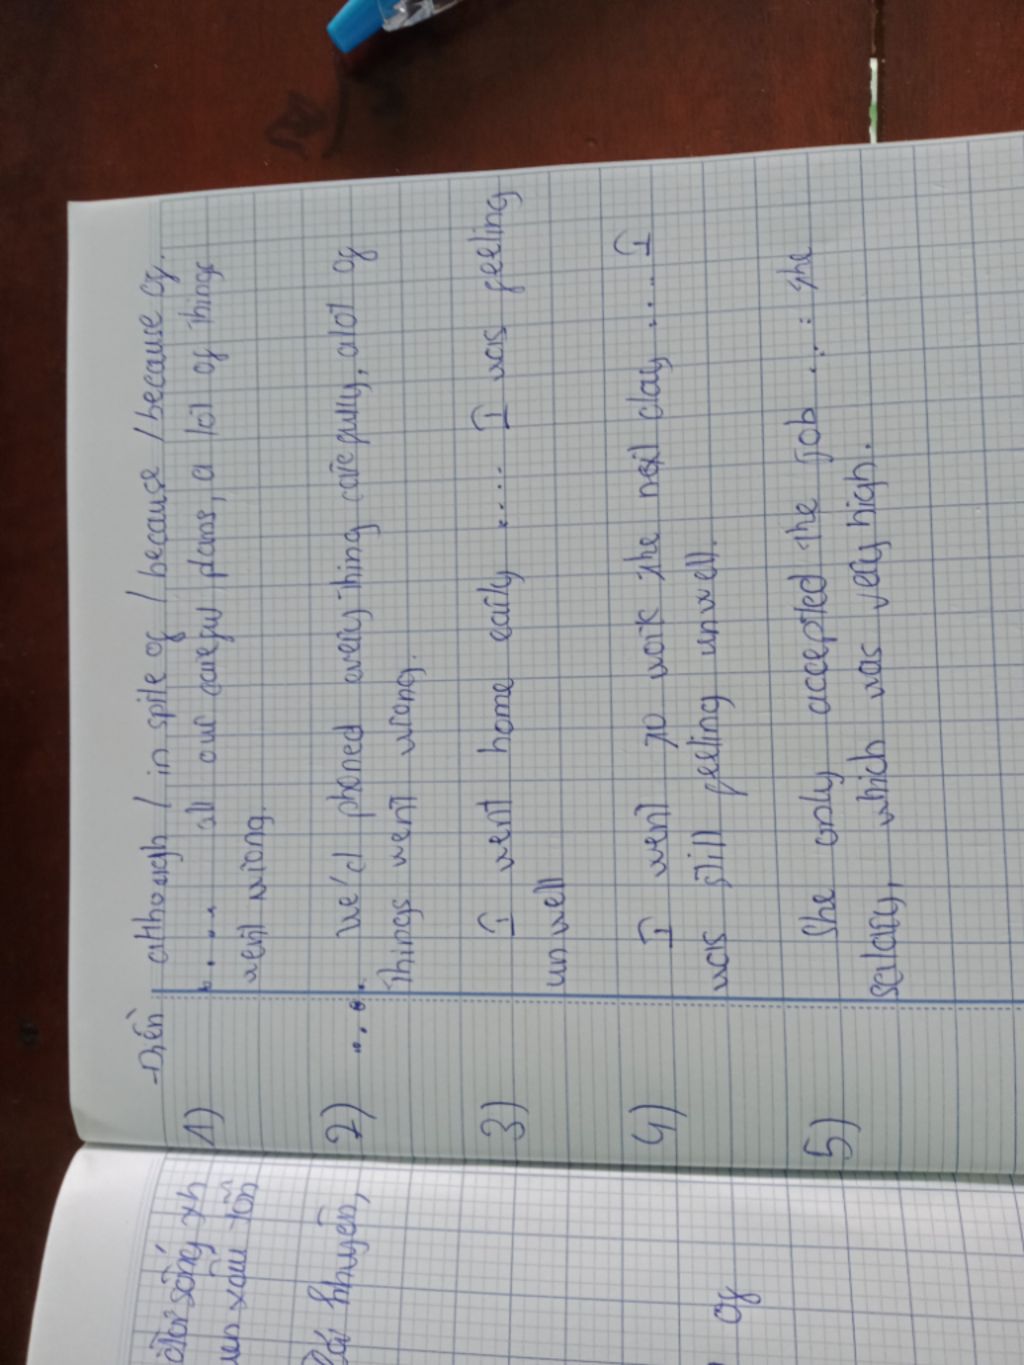 -Điền although / in spite of / because / because of.
1) ..... all our careful plans, a lot of things
went wrong.
2) ..... we'd phoned every thing carefully, alot of
things went wrong.
3) I went home early .... I was feeling
unwell
4) I went to work the next day .... I
was still feeling unwell.
5) She only accepted the job .... the
salary, which was very high.
sống
xấu
khuyên,
of